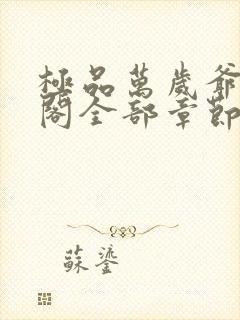 極品萬歲爺
閣全部章節
蘇鎏